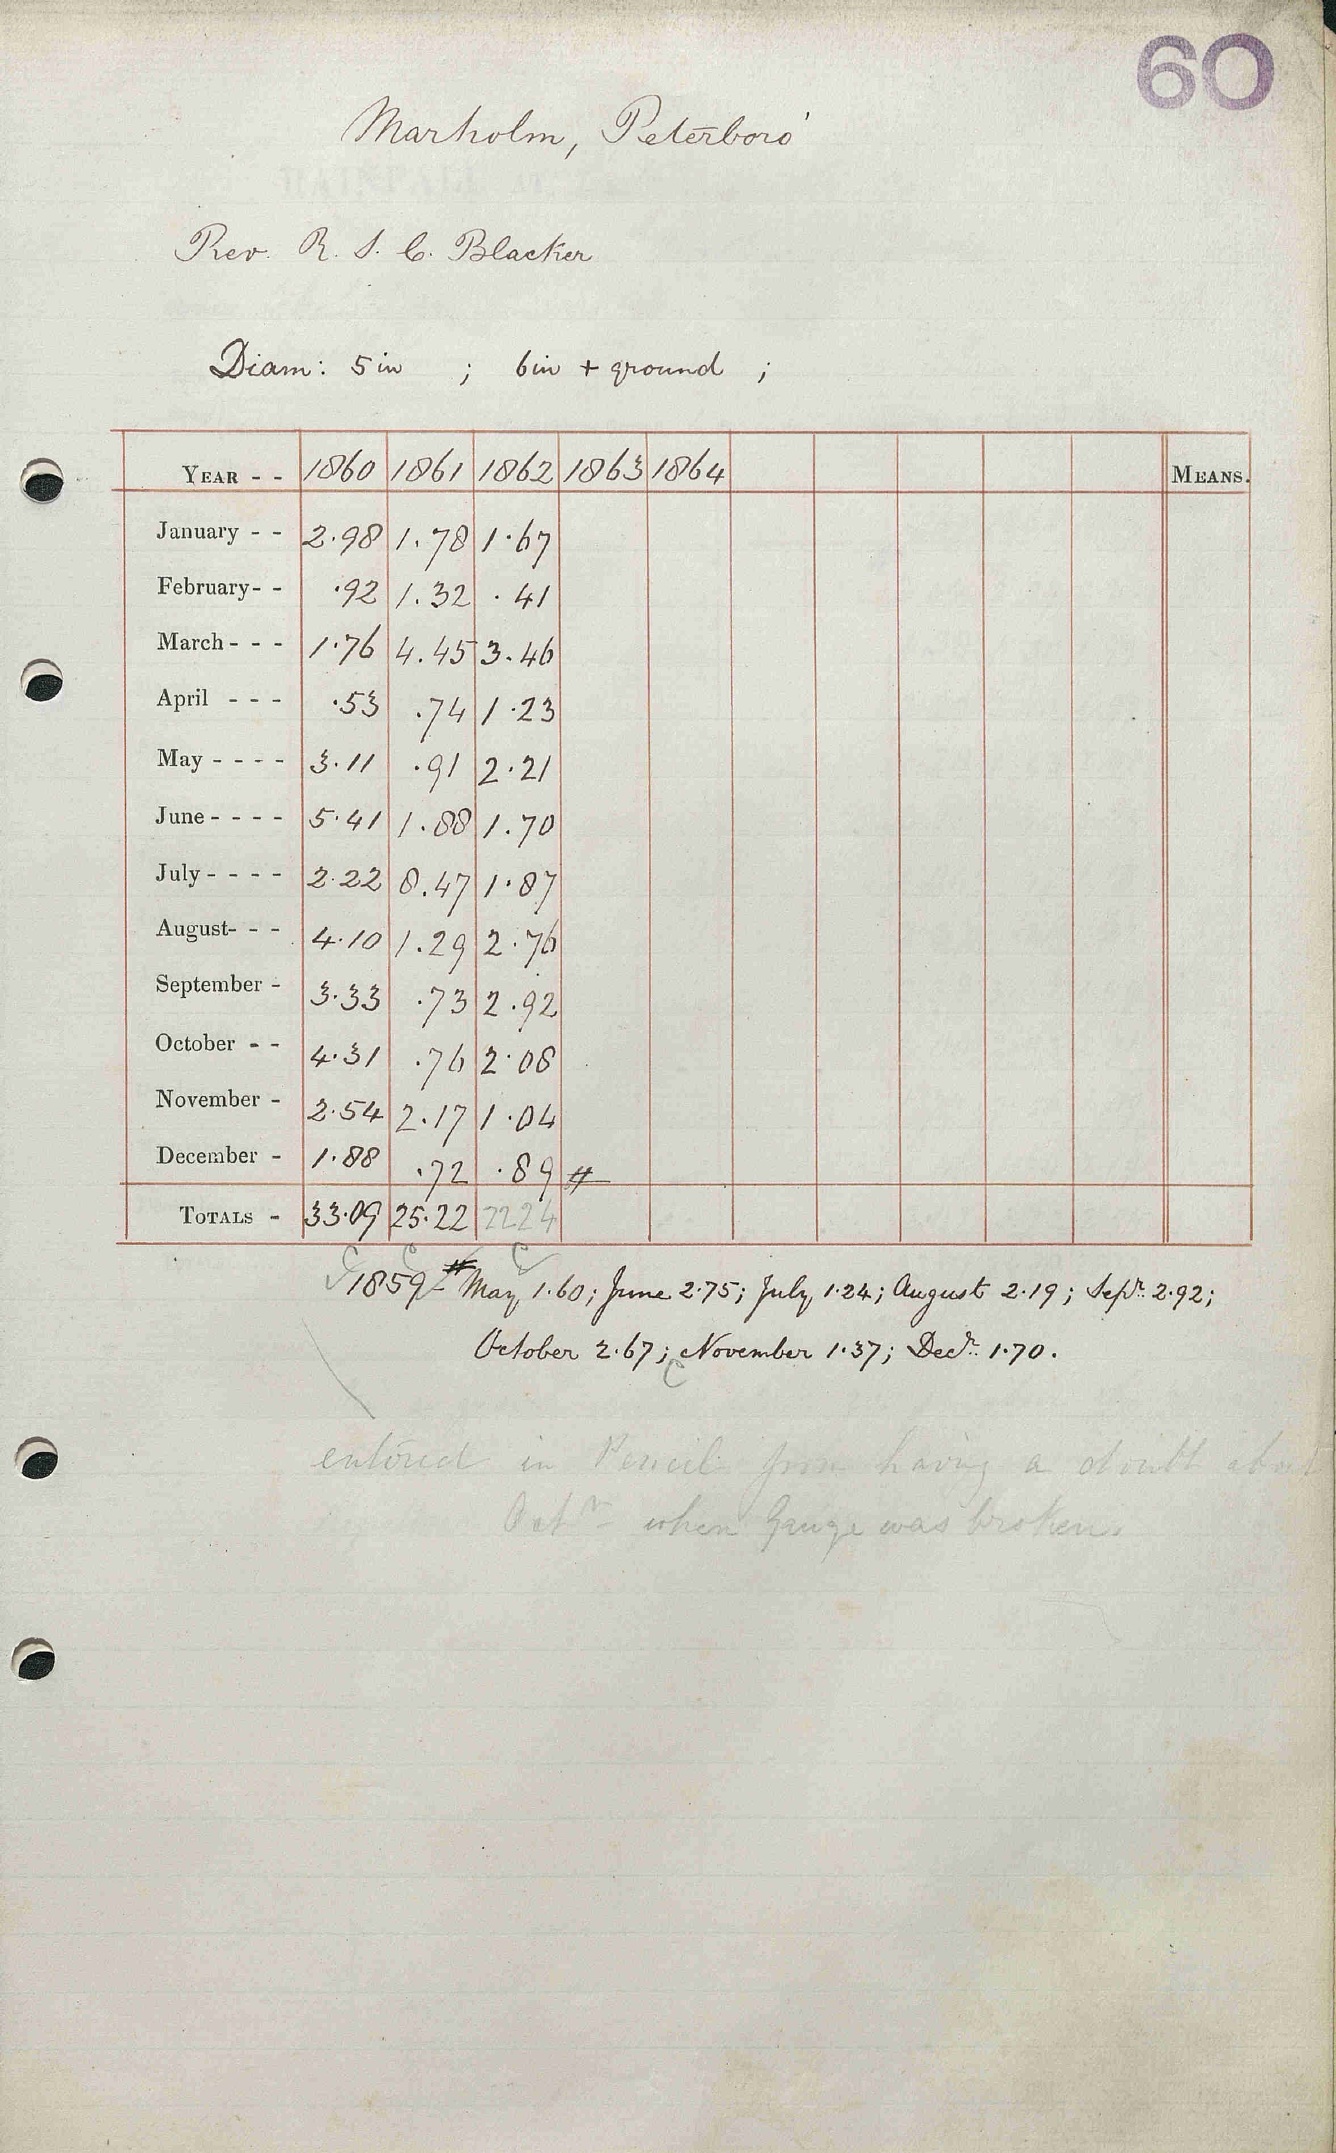 60
Marholm, Peterboro'
Rev. R. S. C. Blacker
Diam: 5 in ; 6 in + ground ;
YEAR - - 1860 1861 1862 1863 1864 MEANS.
January - - 2.98 1.78 1.67
February - - .92 1.32 .41
March - - - 1.76 4.45 3.46
April - - - .53 .74 1.23
May - - - - 3.11 .91 2.21
June - - - - 5.41 1.88 1.70
July - - - - 2.22 8.47 1.87
August - - - 4.10 1.29 2.76
September - 3.33 .73 2.92
October - - 4.31 .76 2.08
November - 2.54 2.17 1.04
December - 1.88 .72 .89 #
TOTALS - 33.09 25.22 22 24
1859 # May 1.60; June 2.75; July 1.24; August 2.19; Sepr. 2.92;
October 2.67; November 1.37; Decr. 1.70.
entered in Pencil from having a doubt about
Octr when Gauge was broken.